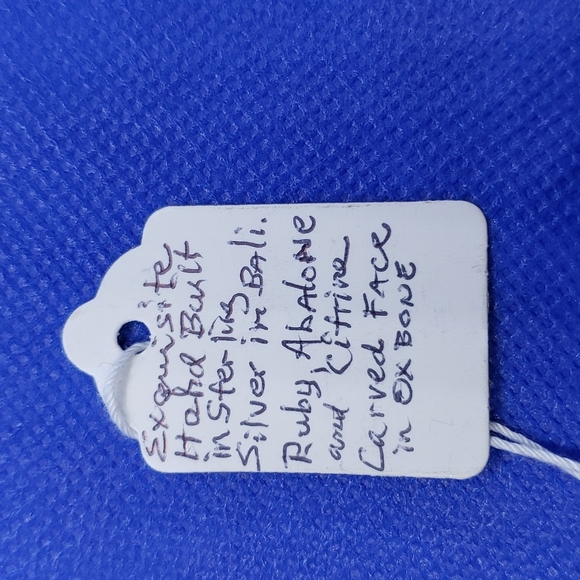 Exquisite
Hand Built
in Sterling
Silver in BALi.
Ruby, AbALONE
and Citrine
Carved FACE
in OX BONE